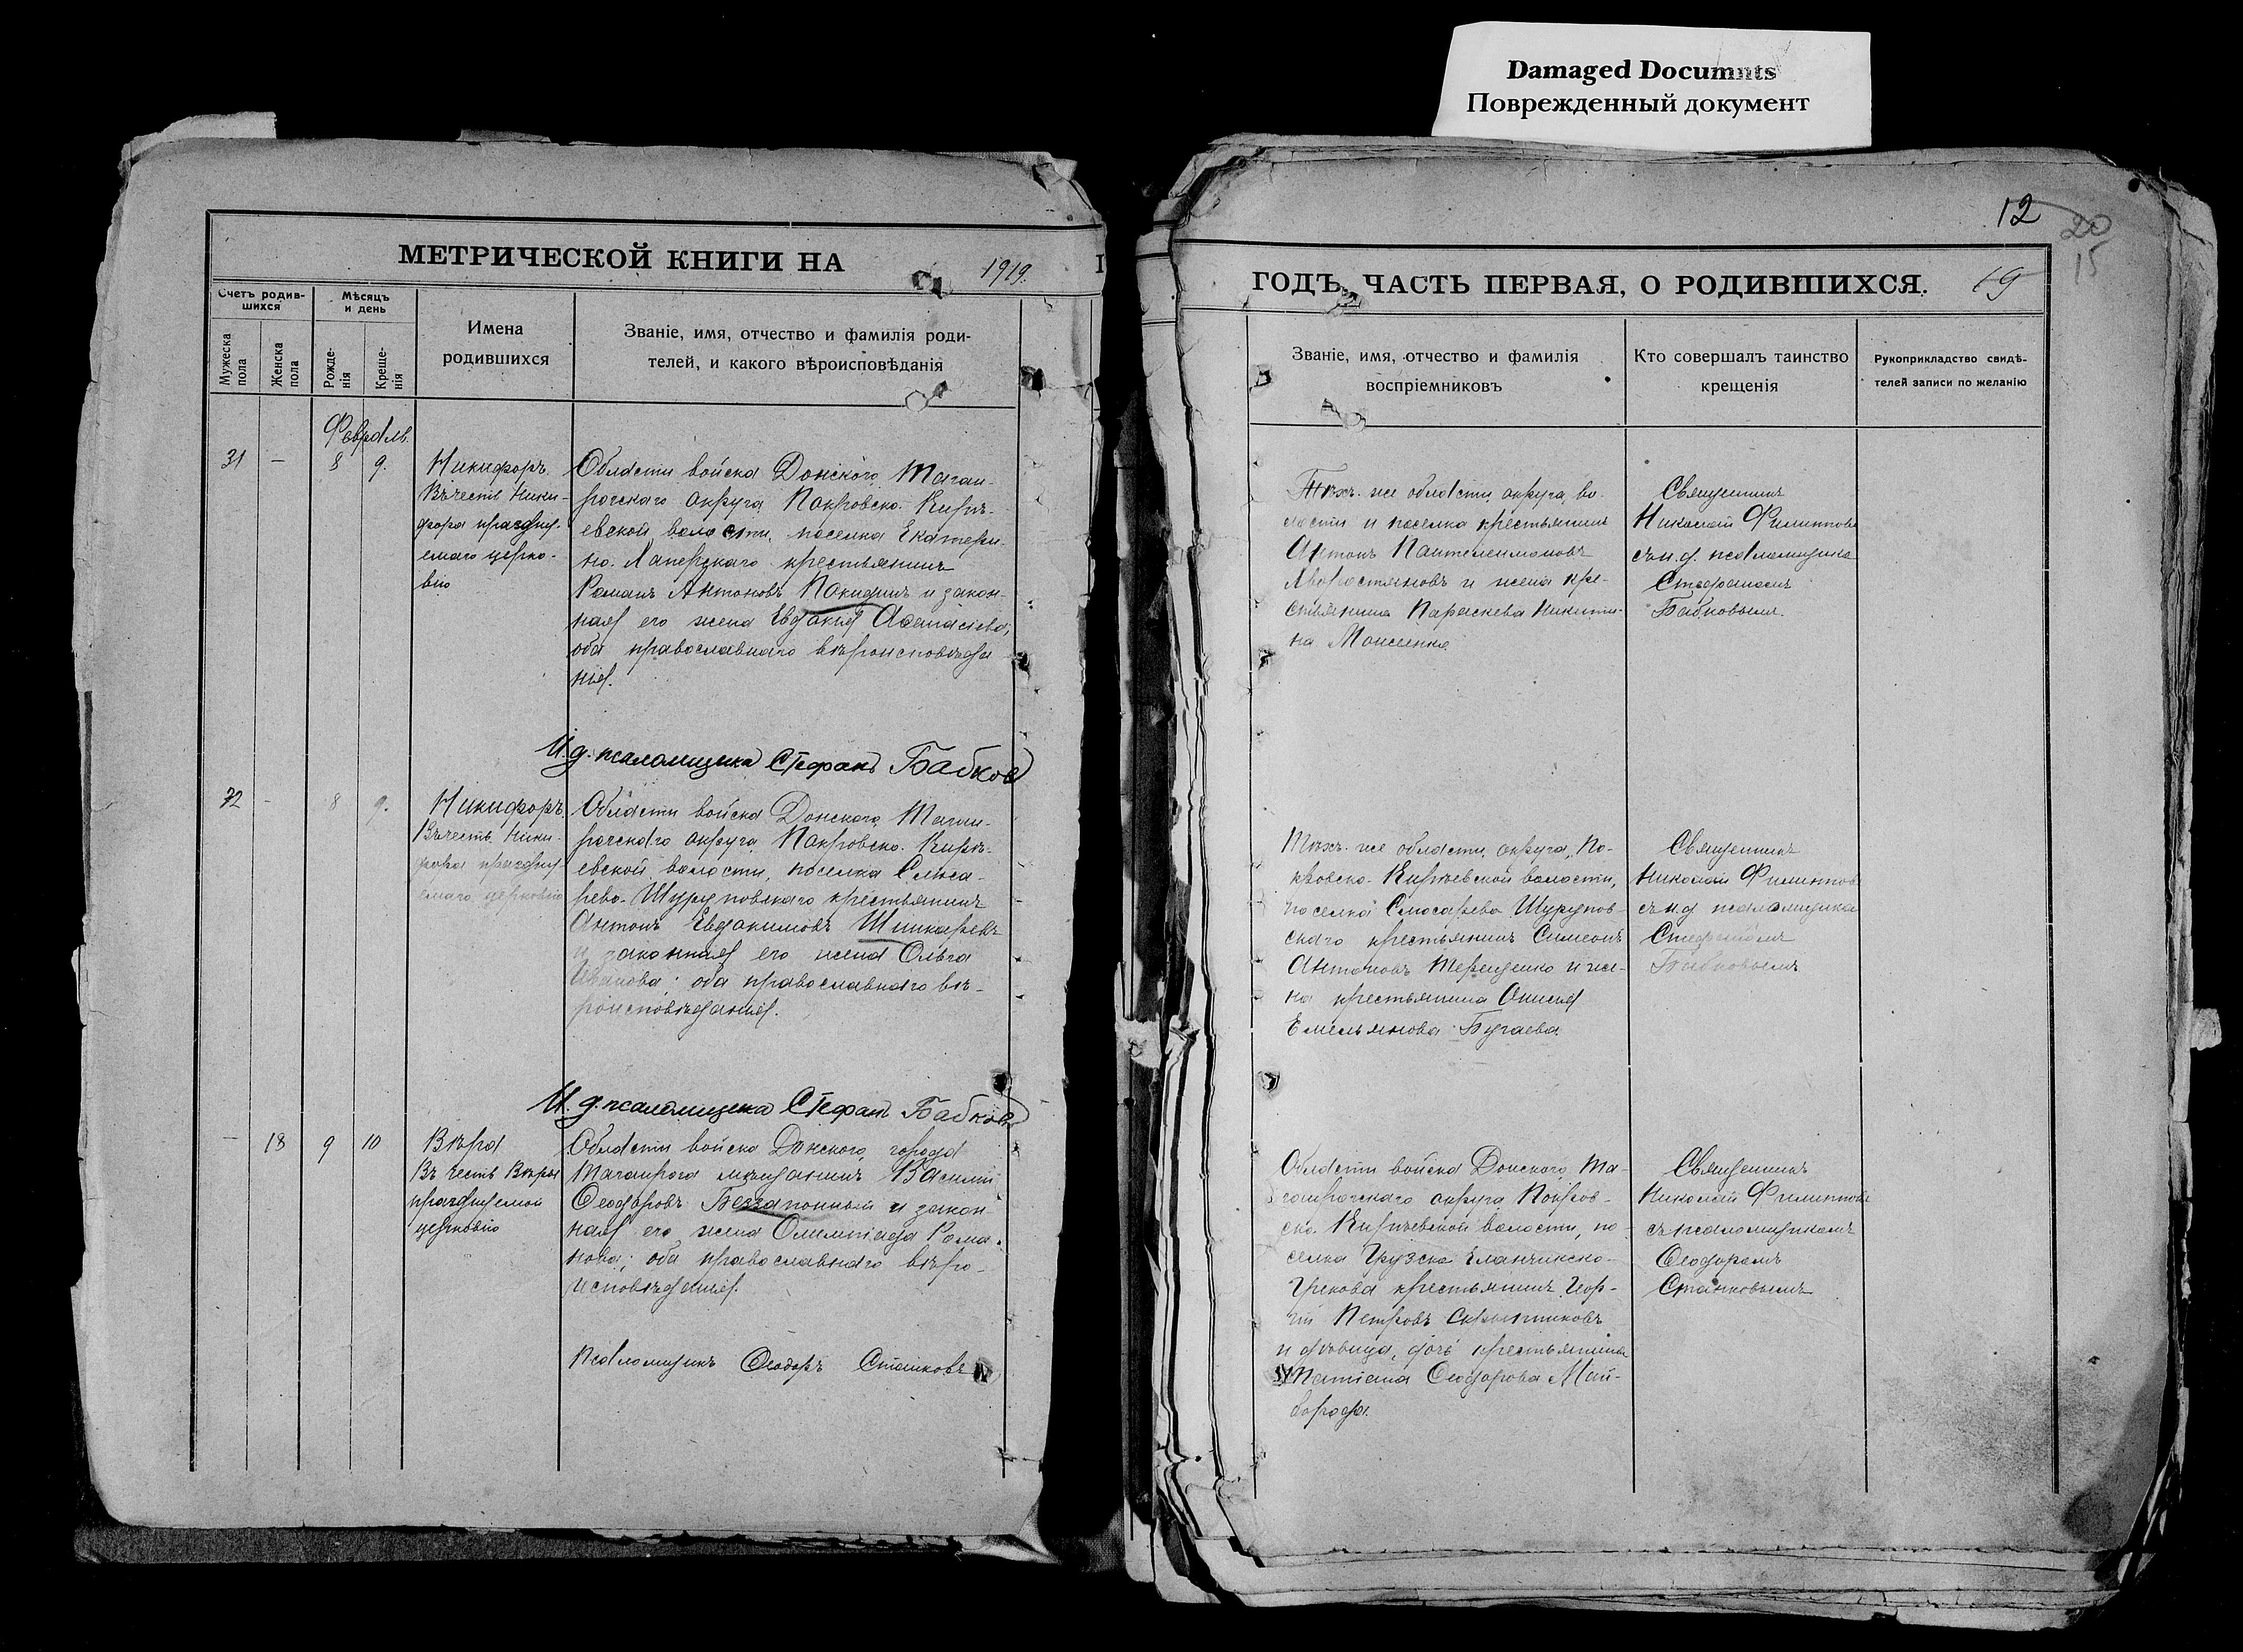 Damaged Documnts
Поврежденный документ
МЕТРИЧЕСКОЙ КНИГИ НА 1919.
Счетъ родив-
шихся
Мѣсяцъ
и день
Мужеска
пола
Женска
пола
Рожде-
нія
Креще-
нія
Имена
родившихся
Званіе, имя, отчество и фамилія роди-
телей, и какого вѣроисповѣданія
Февраль.
31 — 8 9.
Никифоръ.
Въ честь Ники-
фора праздну-
емаго церко-
вію
Области войска Донского, Таган-
рогскаго округа, Покровско-Кирѣ-
евской волости, поселка Екатери-
но-
крестьянинъ
Романъ Антоновъ и закон-
ная его жена Евдокія
оба православнаго вѣроисповѣда
нія.
И. д. псаломщика Стефанъ Бабковъ
32 - 8 9.
Никифоръ.
Въ честь Ники-
фора праздну-
емаго церковію
Области войска Донского, Таган-
рогскаго округа, Покровско-Кирѣ-
евской волости, поселка Слюса-
рево-Шуруповскаго крестьянинъ
Антонъ Евдокимовъ
и законная его жена Ольга
Иванова; оба православнаго вѣ-
роисповѣданія.
И. д. псаломщика Стефанъ Бабковъ
— 18 9 10
Вѣра
Въ честь Вѣры
празднуемой
церковію
Области войска Донского, города
Таганрога мѣщанинъ Василій
Ѳеодоровъ и закон
ная его жена Олимпіада Рома-
нова; оба православнаго вѣро-
исповѣданія.
Псаломщикъ Ѳеодоръ Станковъ
12
20
15
ГОДЪ, ЧАСТЬ ПЕРВАЯ, О РОДИВШИХСЯ. 19
Званіе, имя, отчество и фамилія
воспріемниковъ
Кто совершалъ таинство
крещенія
Рукоприкладство свидѣ-
телей записи по желанію
Тѣхъ-же области, округа, во-
лости и поселка крестьянинъ
Антонъ Пантелеимоновъ
и жена кре-
стьянина Параскева Никити-
на
Священникъ
Николай Филипповъ
съ и. д. псаломщика
Стефаномъ
Бабковымъ.
Тѣхъ-же области, округа, По-
кровско-Кирѣевской волости,
поселка Слюсарева Шурупов-
скаго крестьянинъ Симеонъ
Антоновъ Терещенко и же-
на крестьянина Анисія
Емельянова Бугаева
Священникъ
Николай Филиппов
съ и. д псаломщика
Стефаномъ
Бабковымъ
Области войска Донского, Та-
ганрогскаго округа Покров-
ско-Кирѣевской волости, по-
селка Грузско-Еланчикско-
крестьянинъ Геор-
гій Петровъ Скрыпниковъ
и дѣвица, дочь крестьянина
Татіана Ѳеодорова Май-
борода.
Священникъ
Николай Филипповъ
съ псаломщикомъ
Ѳеодоромъ
Станковымъ